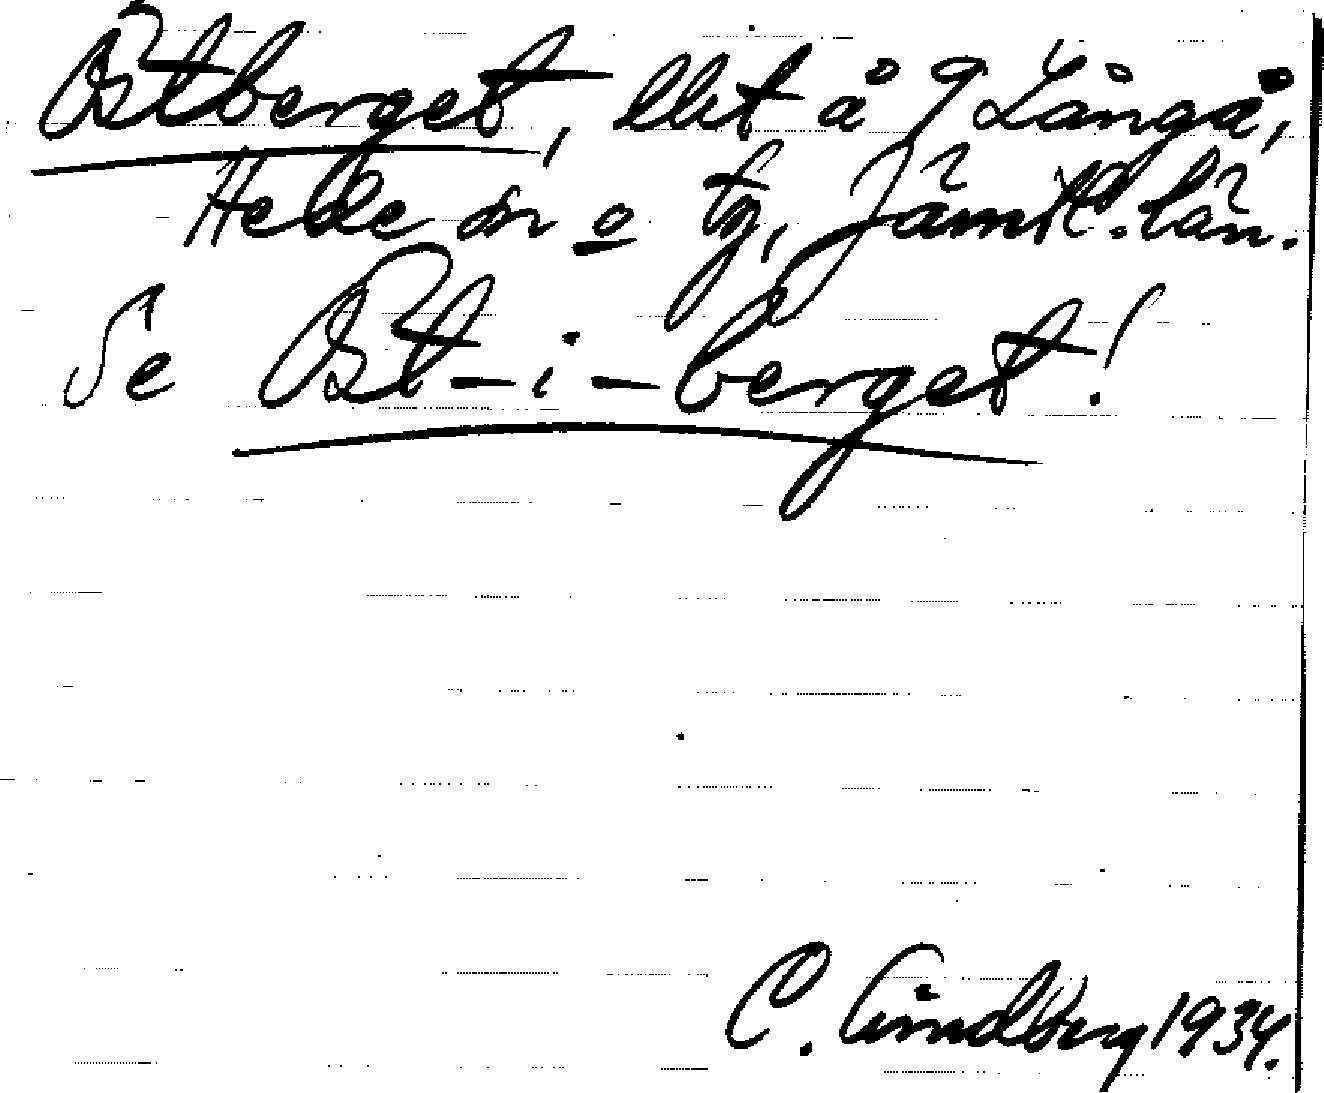 Östberget, å Långå,
Hede sn o tg, Jämtl. län.
Se Öst-i-berget!
C. Lindberg 1934.